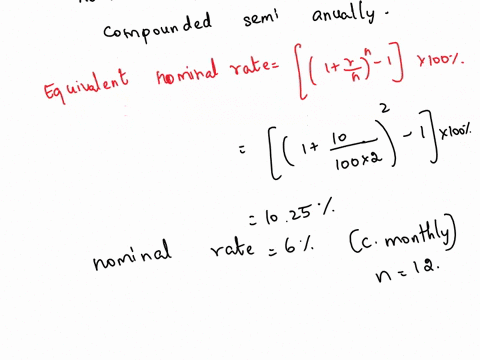 compounded semi anually.
Equivalent nominal rate = [(1+r/n)^n - 1] ×100%.
= [(1+ 10/100×2)^2 - 1] ×100%
= 10.25%
nominal rate = 6% (c. monthly)
n = 12.